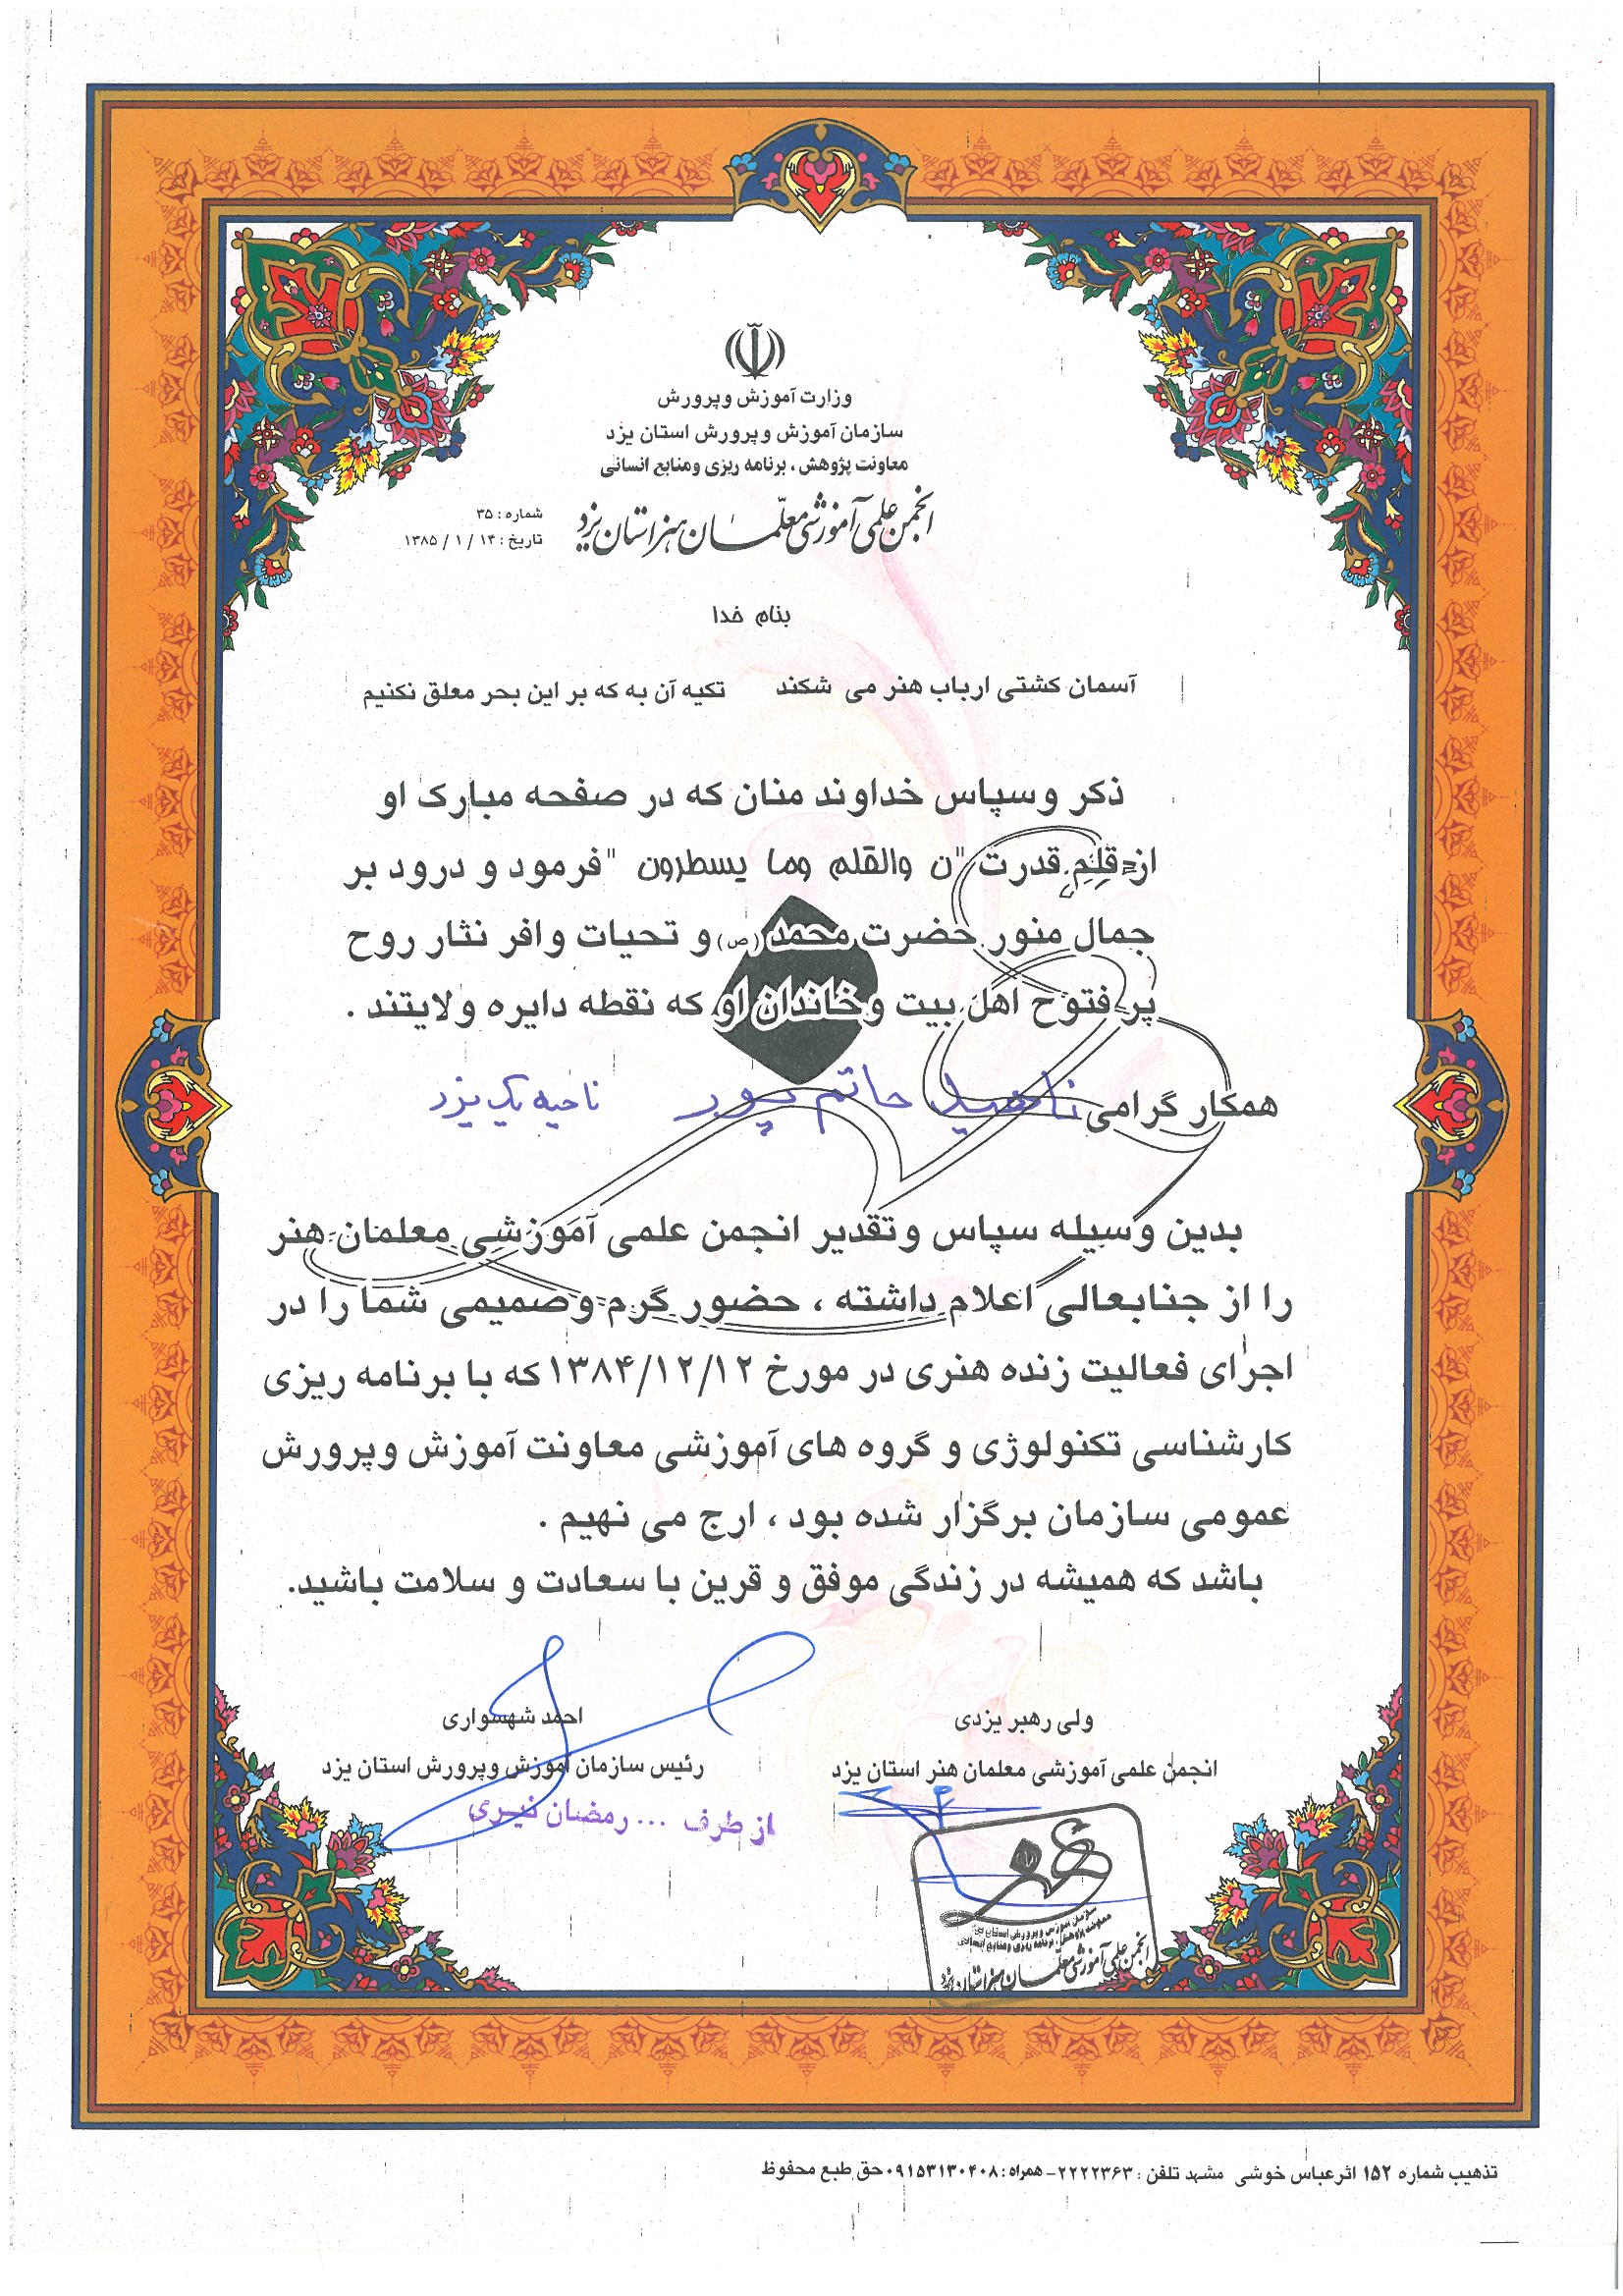 وزارت آموزش وپرورش
سازمان آموزش وپرورش استان یزد
معاونت پژوهش ، برنامه ریزی ومنابع انسانی
انجمن علمی آموزشی معلّمان هنر استان یزد
شماره : ۳۵
تاریخ : ۱۴ / ۱ / ۱۳۸۵
بنام خدا
آسمان کشتی ارباب هنر می شکند تکیه آن به که بر این بحر معلق نکنیم
ذکر وسپاس خداوند منان که در صفحه مبارک او
از قلم قدرت "ن والقلم وما یسطرون "فرمود و درود بر
جمال منور حضرت محمد (ص) و تحیات وافر نثار روح
پر فتوح اهل بیت و خاندان او که نقطه دایره ولایتند .
همکار گرامی ناهید حاتم پور ناحیه یک یزد
بدین وسیله سپاس وتقدیر انجمن علمی آموزشی معلمان هنر
را از جنابعالی اعلام داشته ، حضور گرم وصمیمی شما را در
اجرای فعالیت زنده هنری در مورخ ۱۳۸۴/۱۲/۱۲ که با برنامه ریزی
کارشناسی تکنولوژی و گروه های آموزشی معاونت آموزش وپرورش
عمومی سازمان برگزار شده بود ، ارج می نهیم .
باشد که همیشه در زندگی موفق و قرین با سعادت و سلامت باشید.
ولی رهبر یزدی
انجمن علمی آموزشی معلمان هنر استان یزد
احمد شهسواری
رئیس سازمان آموزش وپرورش استان یزد
از طرف ... رمضان نیری
هنر
سازمان آموزش وپرورش استان یزد
معاونت پژوهش ، برنامه ریزی ومنابع انسانی
انجمن علمی آموزشی معلّمان هنر استان یزد
تذهیب شماره ۱۵۲ اثرعباس خوشی مشهد تلفن : ۲۲۲۲۳۶۳- همراه : ۰۹۱۵۳۱۳۰۴۰۸حق طبع محفوظ